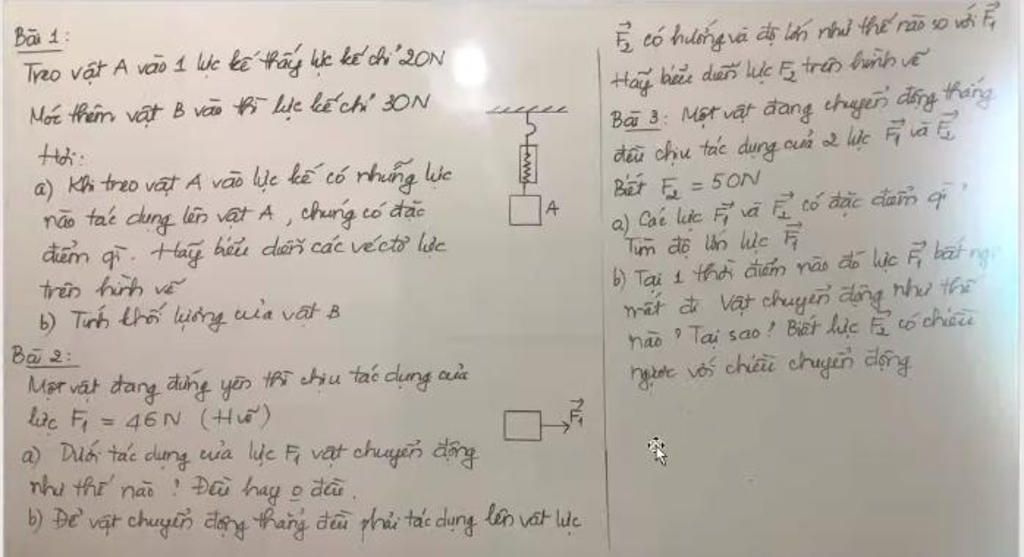 Bài 1:
Treo vật A vào 1 lực kế thấy lực kế chỉ 20N
Móc thêm vật B vào thì lực kế chỉ 30N
Hỏi:
a) Khi treo vật A vào lực kế có những lực
nào tác dụng lên vật A, chúng có đặc
điểm gì. Hãy biểu diễn các véctơ lực
trên hình vẽ
b) Tính khối lượng của vật B
A
Bài 2:
Một vật đang đứng yên thì chịu tác dụng của
lực F₁ = 46N (H vẽ)
F₁
a) Dưới tác dụng của lực F₁ vật chuyển động
như thế nào? Đều hay o đều.
b) Để vật chuyển động thẳng đều phải tác dụng lên vật lực
F₂ có hướng và độ lớn như thế nào so với F₁
Hãy biểu diễn lực F₂ trên hình vẽ
Bài 3: Một vật đang chuyển động thẳng
đều chịu tác dụng của 2 lực F₁ và F₂
Biết F₂ = 50N
a) Các lực F₁ và F₂ có đặc điểm gì?
Tìm độ lớn lực F₁
b) Tại 1 thời điểm nào đó lực F₁ bất
mất đi vật chuyển động như thế
nào? Tại sao? Biết lực F₂ có chiều
ngược với chiều chuyển động